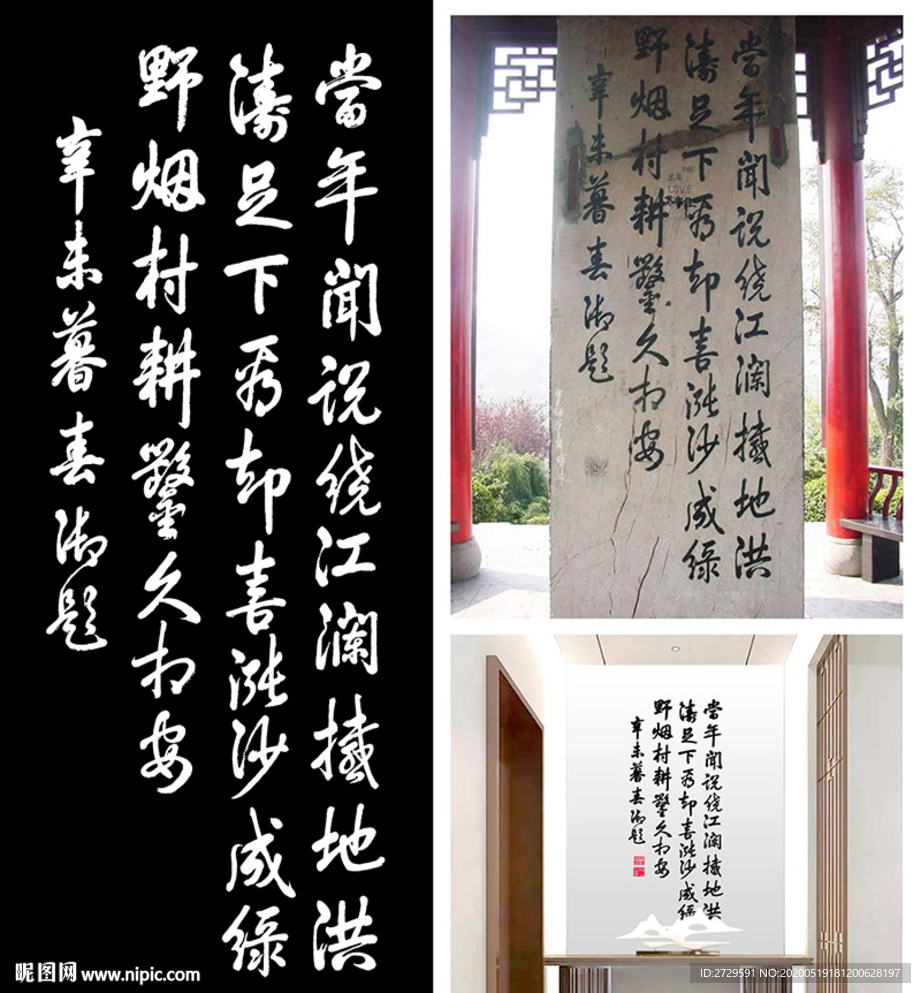 當年聞説繞江瀾撼地洪
濤足下看却喜漲沙成緑
野烟村耕鑿久相安
辛未暮春御題
當年聞説繞江瀾撼地洪
濤足下看却喜漲沙成緑
野烟村耕鑿久相安
辛未暮春御題
當年聞説繞江瀾撼地洪
濤足下看却喜漲沙成緑
野烟村耕鑿久相安
辛未暮春御題
昵图网 www.nipic.com
ID:2729591 NO:20200519181200628197